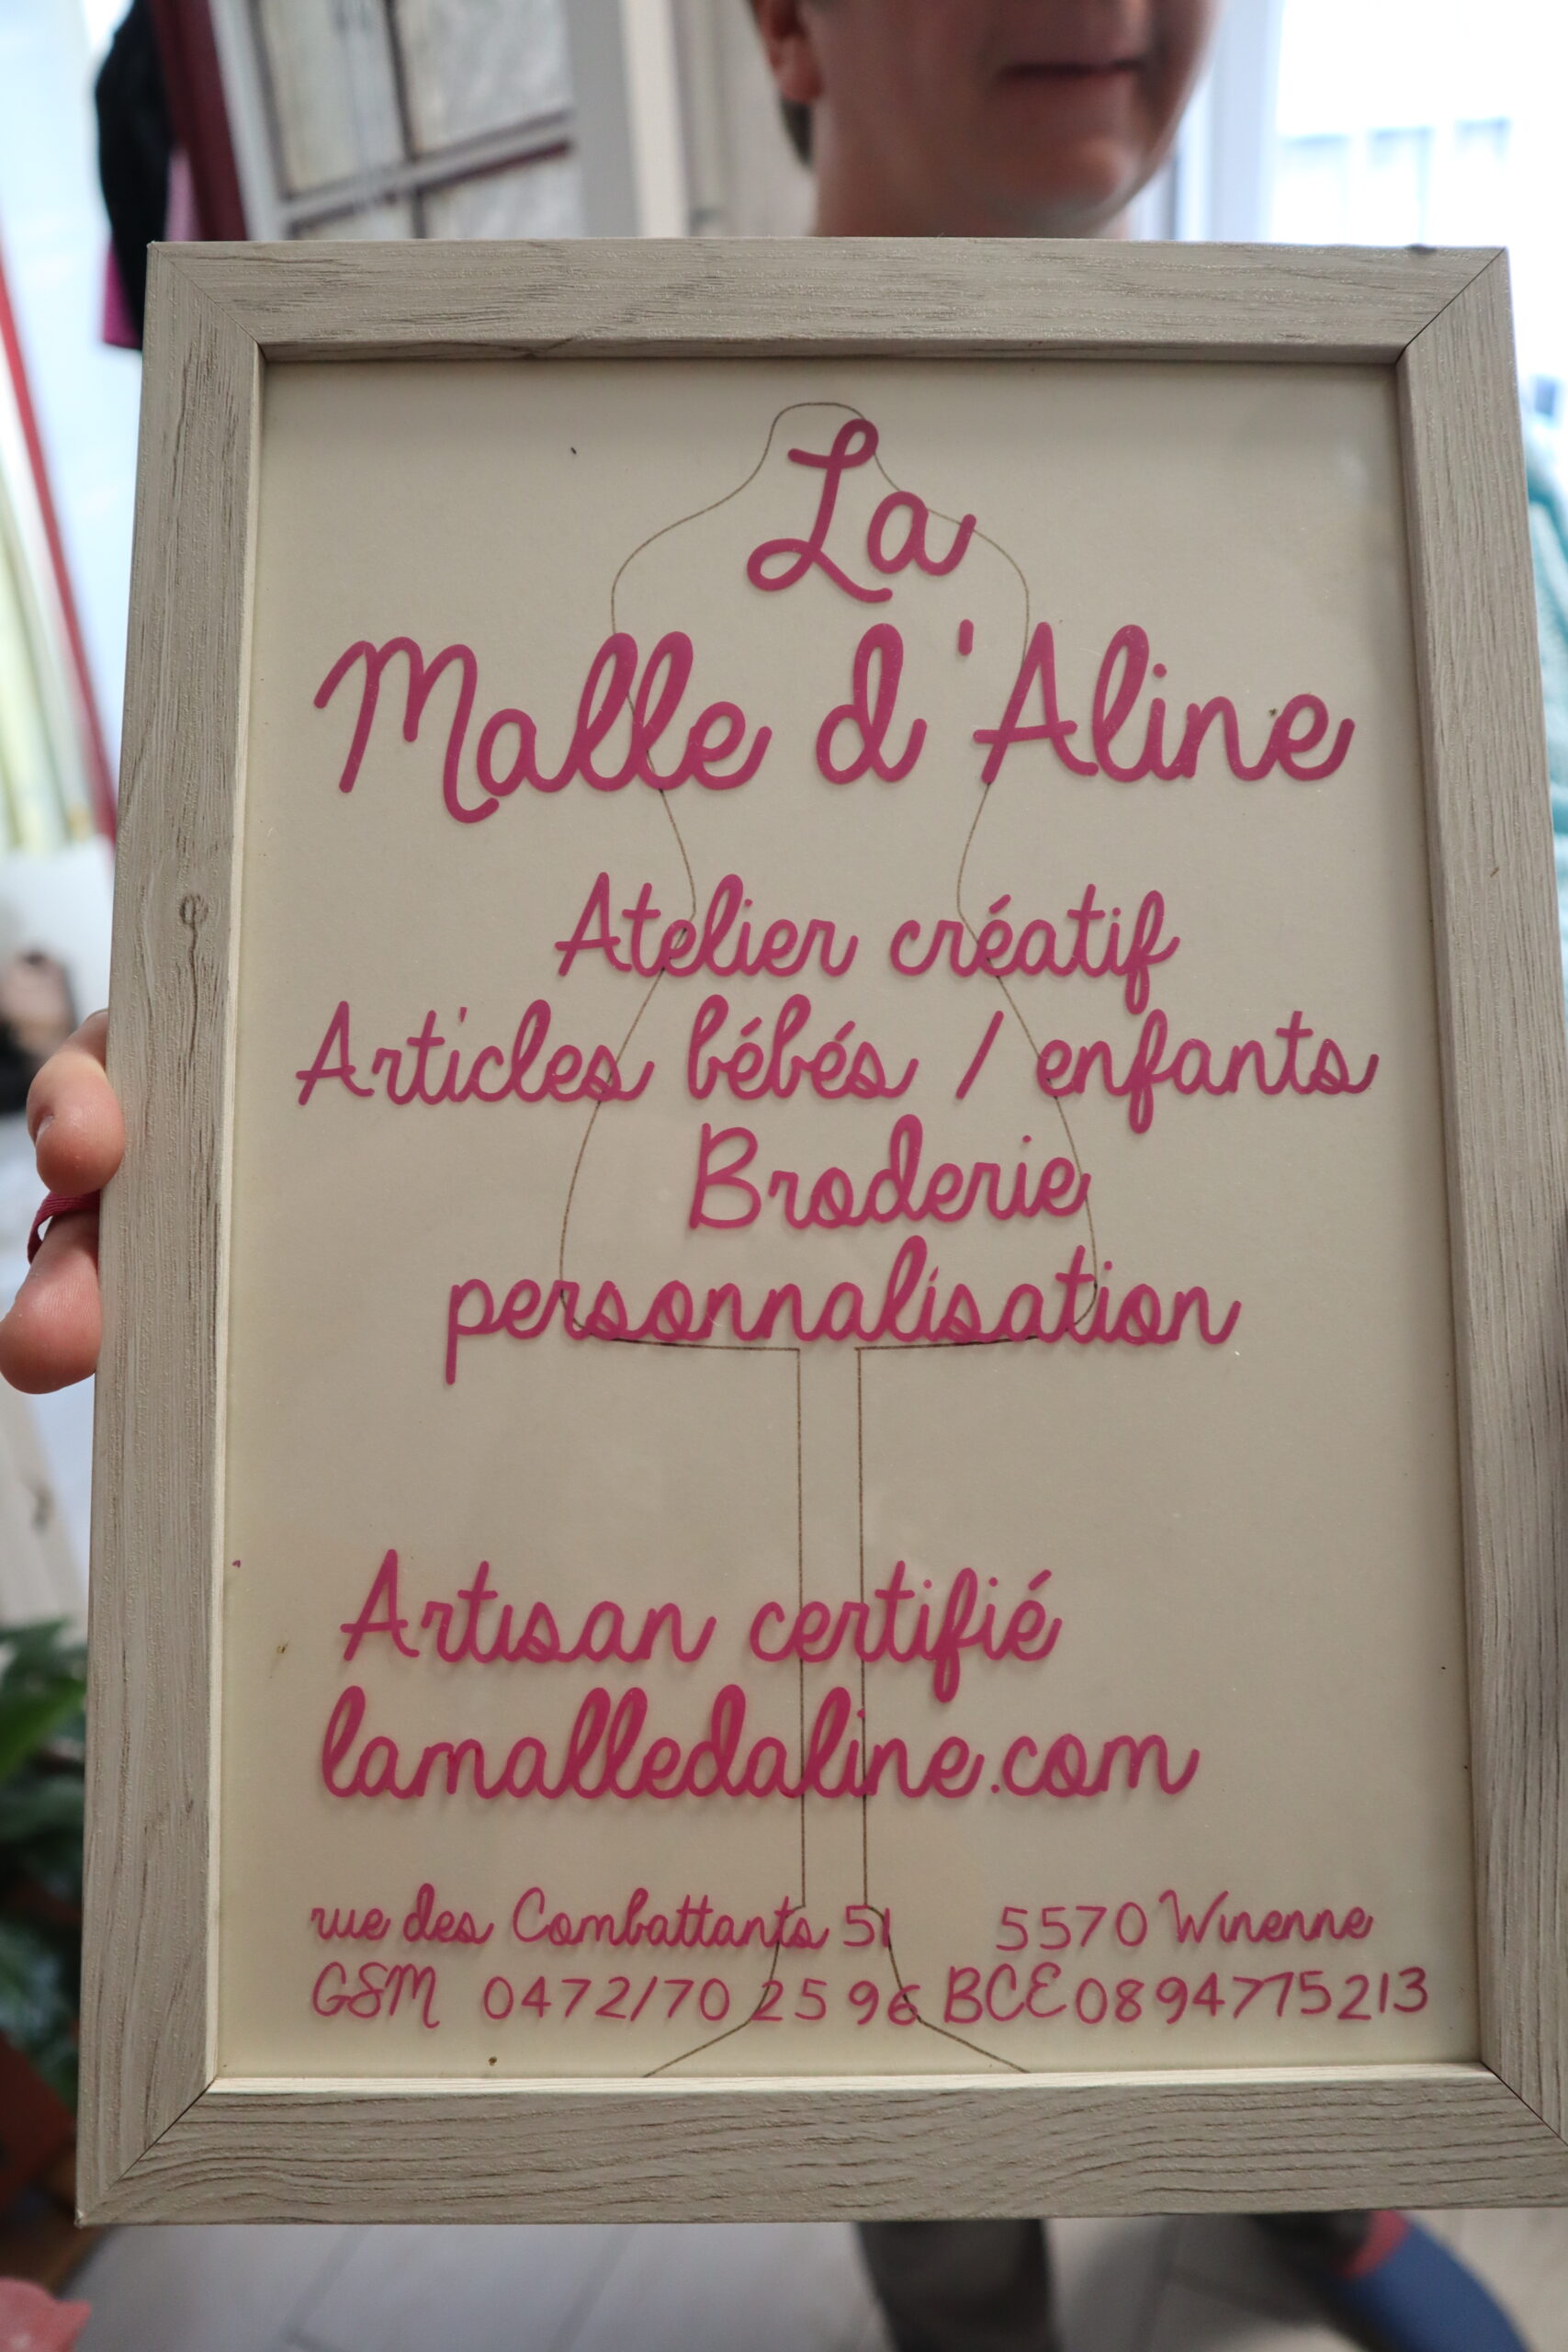 La
Malle d'Aline
Atelier créatif
Articles bébés / enfants
Broderie
personnalisation
Artisan certifié
lamalledaline.com
rue des Combattants 51 5570 Winenne
GSM 0472/70 25 96 BCE 0894775213